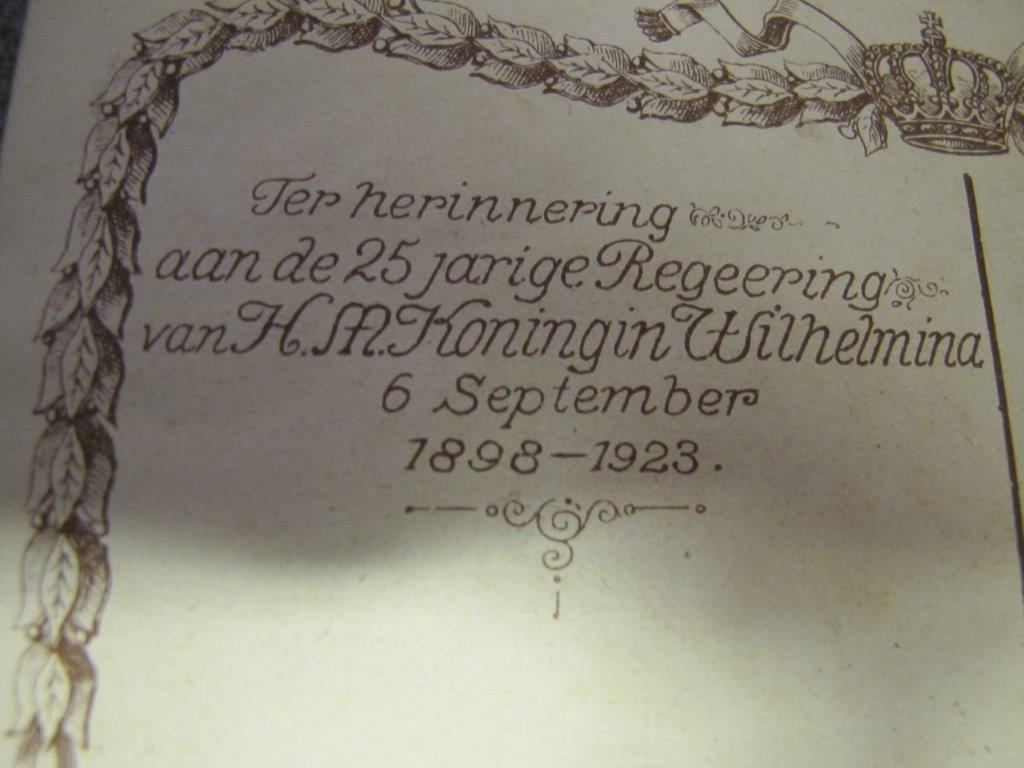 Ter herinnering
aan de 25 jarige Regeering
van H.M. Koningin Wilhelmina
6 September
1898-1923.